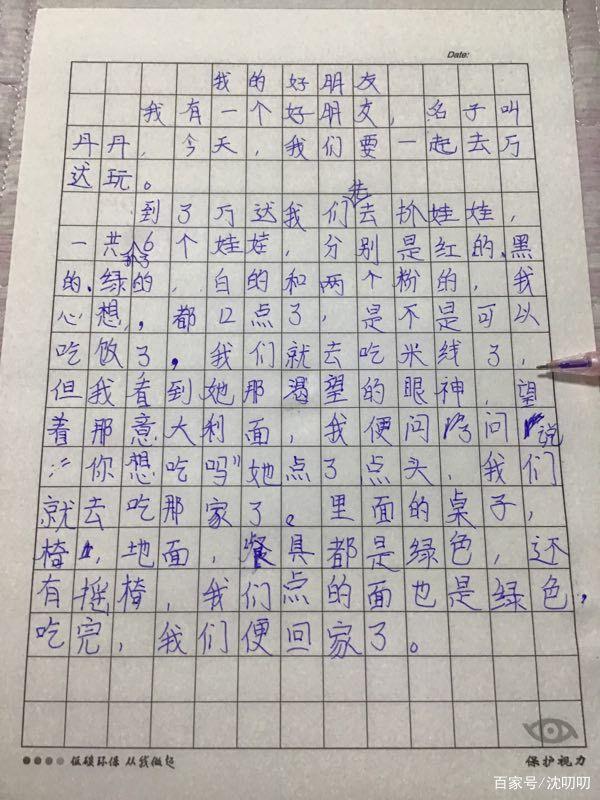 Date:
我的好朋友
我有一个好朋友，名子叫
丹丹，今天，我们要一起去万
达玩。
到了万达我们去抓娃娃，
一共6个娃娃，分别是红的、黑
的、绿的，白的和两个粉的，我
心想，都12点了，是不是可以
吃饭了，我们就去吃米线了，
但我看到她那渴望的眼神，望
着那意大利面，我便问问说
：“你想吃吗”她点了点头，我们
就去吃那家了。里面的桌子，
椅，地面，餐具都是绿色，还
有摇椅，我们点的面也是绿色，
吃完，我们便回家了。
低碳环保 从我做起
保护视力
百家号/沈叨叨